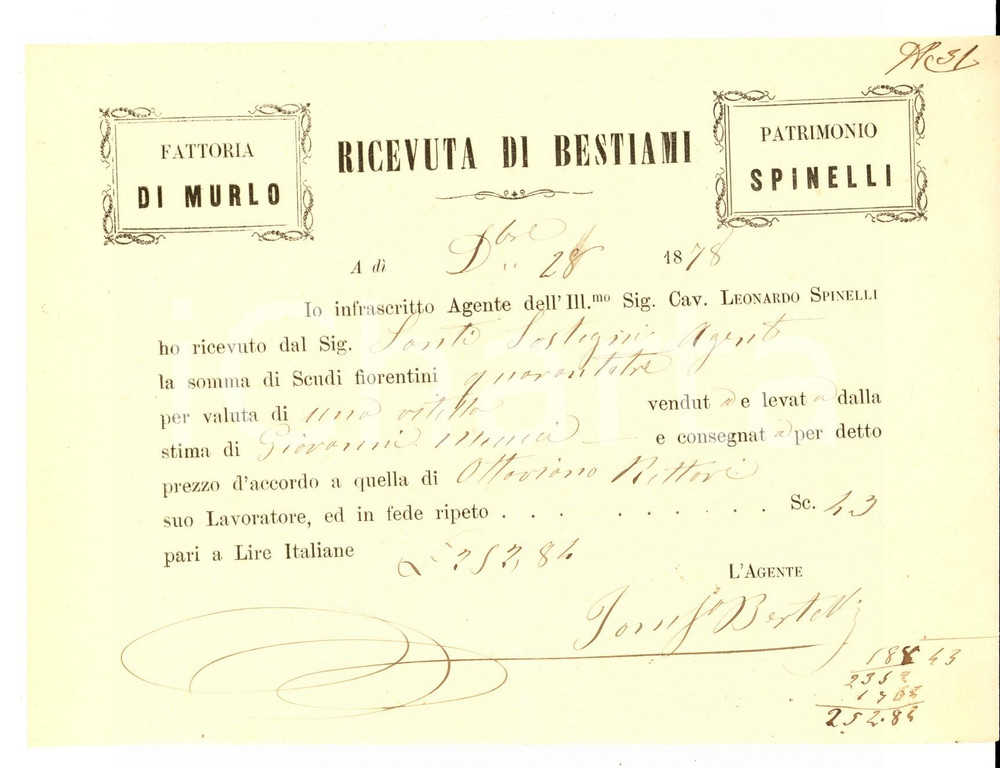 No 31
FATTORIA
DI MURLO
RICEVUTA DI BESTIAMI
PATRIMONIO
SPINELLI
A dì Dbre 28 1878
Io infrascritto Agente dell'Ill.mo Sig. Cav. LEONARDO SPINELLI
ho ricevuto dal Sig. Santi Sostegni Agente
la somma di Scudi fiorentini quarantatre
per valuta di una vitella venduta e levata dalla
stima di Giovanni Menci e consegnata per detto
prezzo d'accordo a quella di Ottaviano Rettori
suo Lavoratore, ed in fede ripeto . . . . . . . . . . Sc. 43
pari a Lire Italiane £ 252,84
L'AGENTE
Tomso Bertelli
188 43
252.84
iCharta